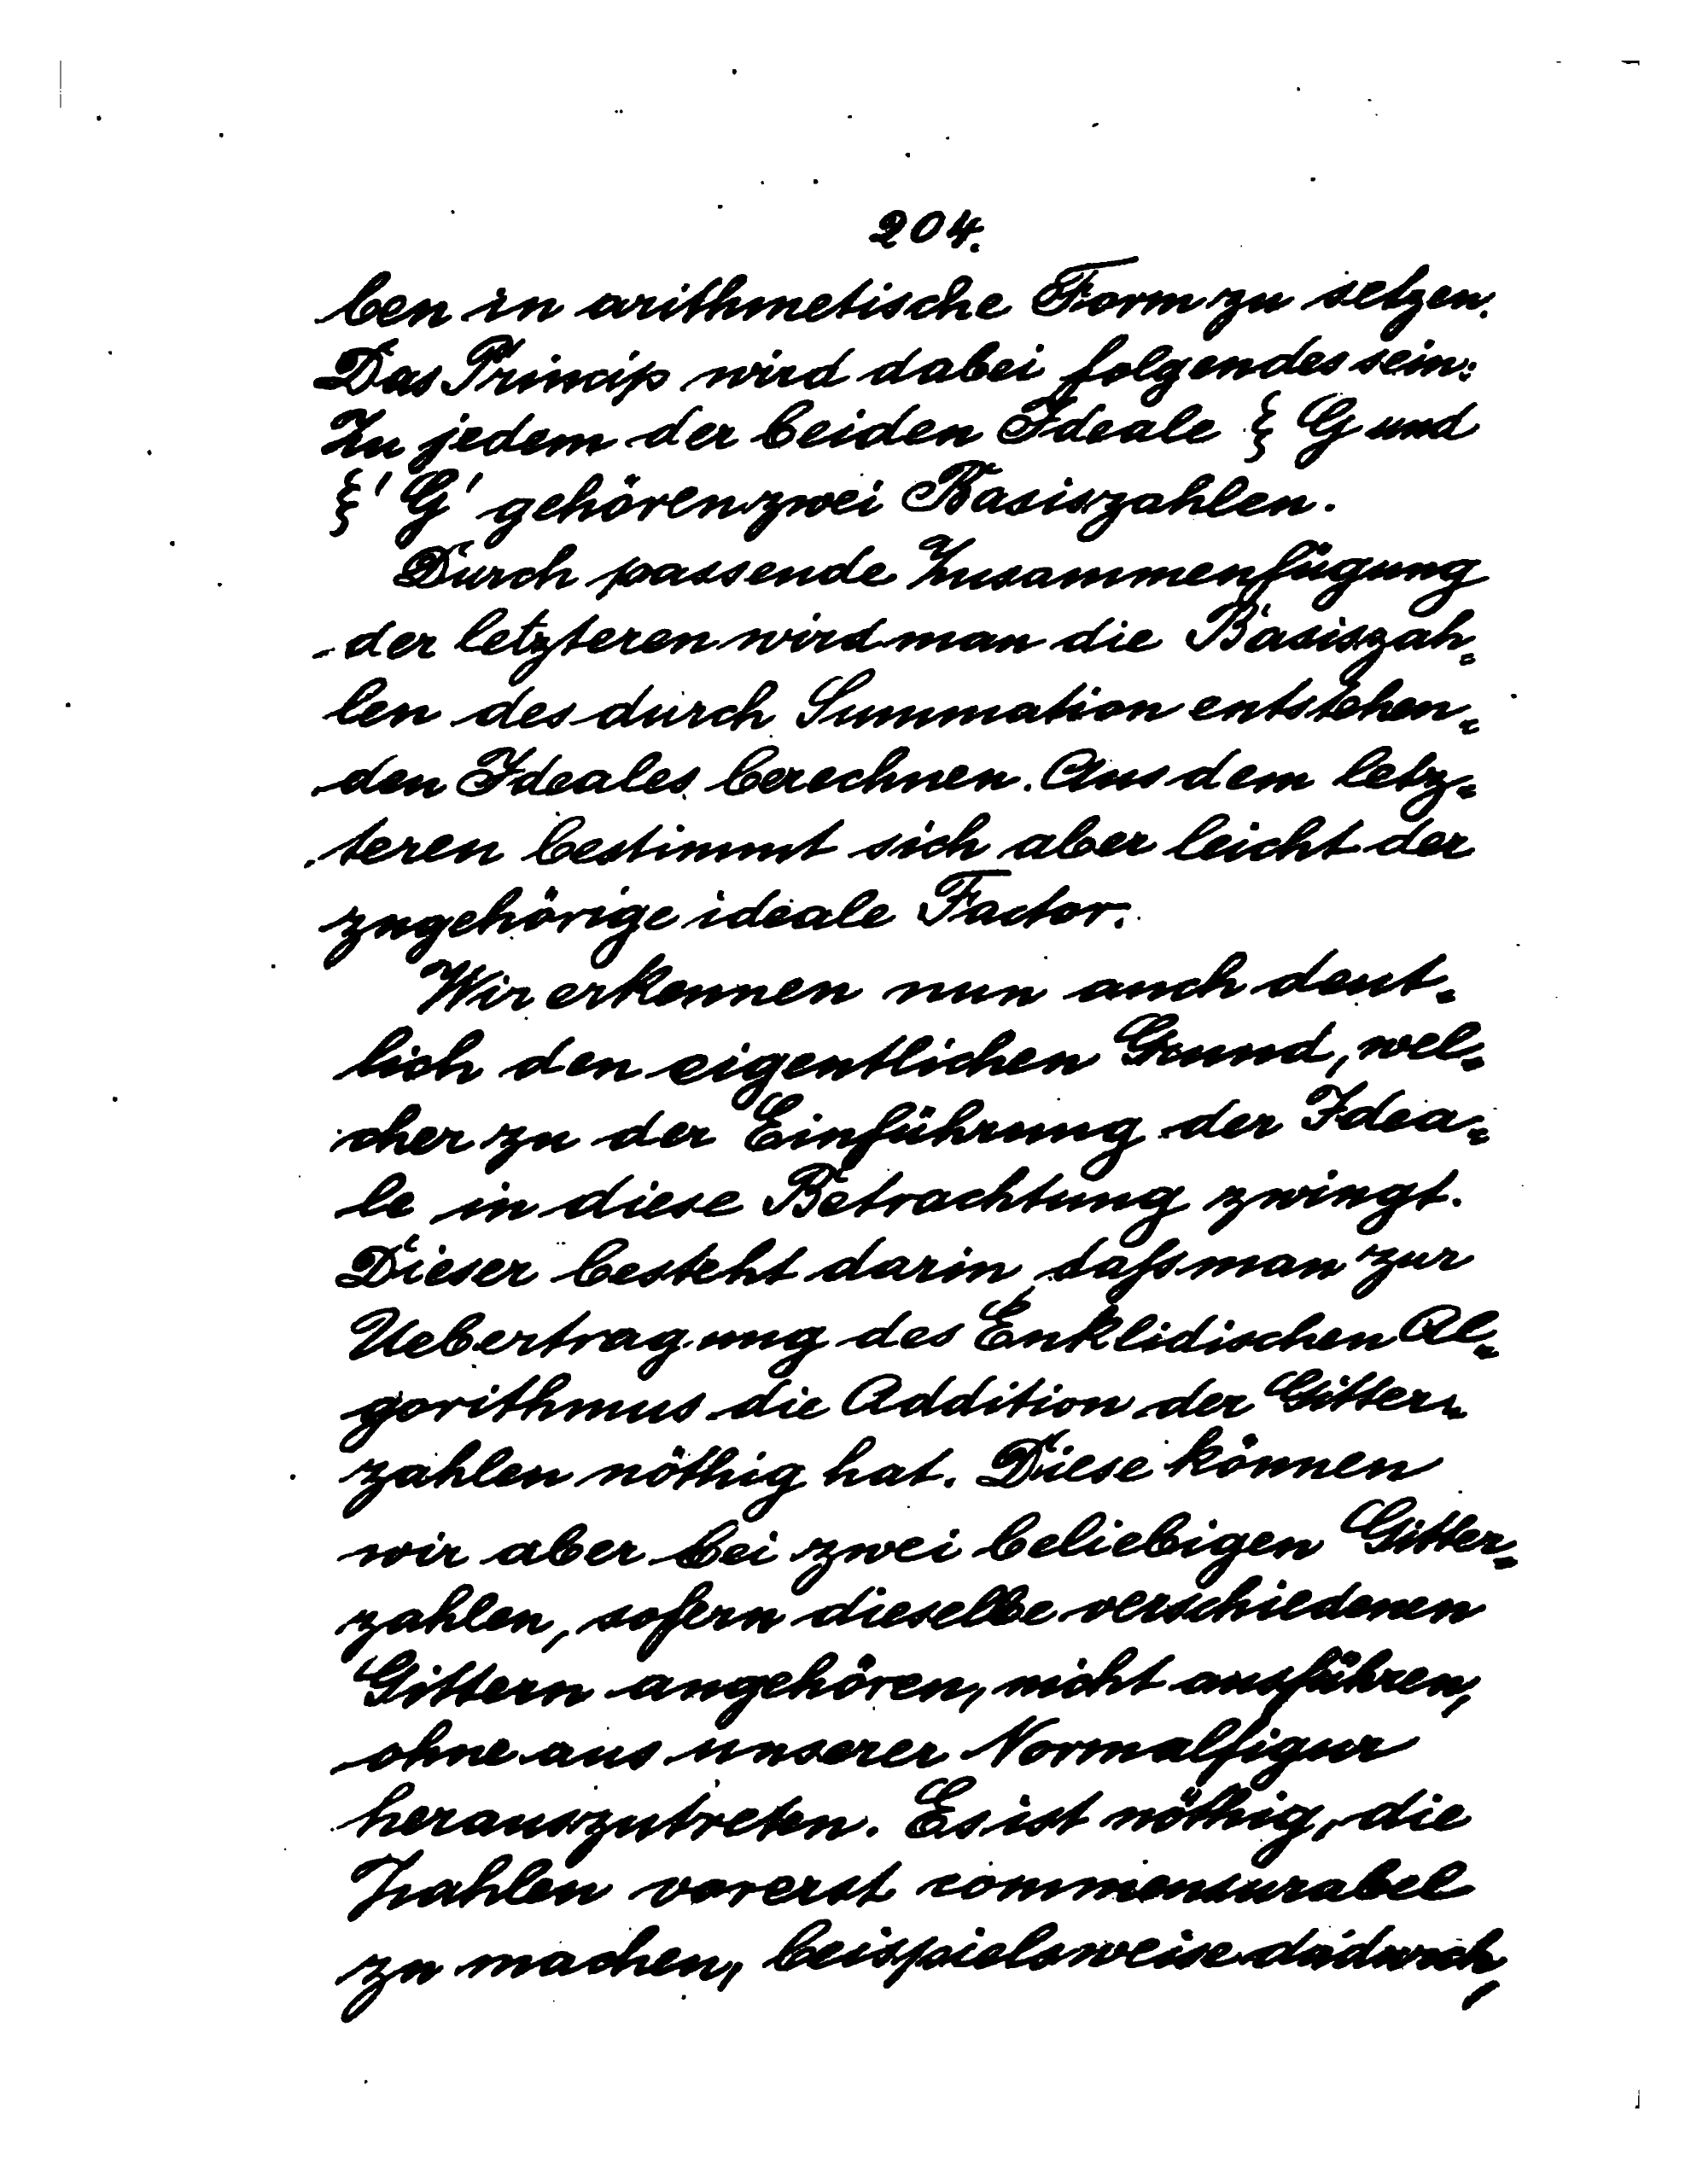 204.
ben in arithmetische Form zu setzen.
Das Princip wird dabei folgendes sein:
Zu jedem der beiden Ideale ξ G und
ξ' G' gehören zwei Basiszahlen.
Durch passende Zusammenfügung
der letzteren wird man die Basiszah-
len des durch Summation entstehen-
den Ideales berechnen. Aus dem letz-
teren bestimmt sich aber leicht der
zugehörige ideale Factor.
Wir erkennen nun auch deut-
lich den eigentlichen Grund, wel-
cher zu der Einführung der Idea-
le in diese Betrachtung zwingt.
Dieser besteht darin, daſs man zur
Uebertragung des Euklidischen Al-
gorithmus die Addition der Gitter-
zahlen nöthig hat. Diese können
wir aber bei zwei beliebigen Gitter-
zahlen, sofern dieselbe verschiedenen
Gittern angehören, nicht ausführen,
ohne aus unserer Normalfigur
herauszutreten. Es ist nöthig, die
Zahlen vorerst commensurabel
zu machen, beispielsweise dadurch,